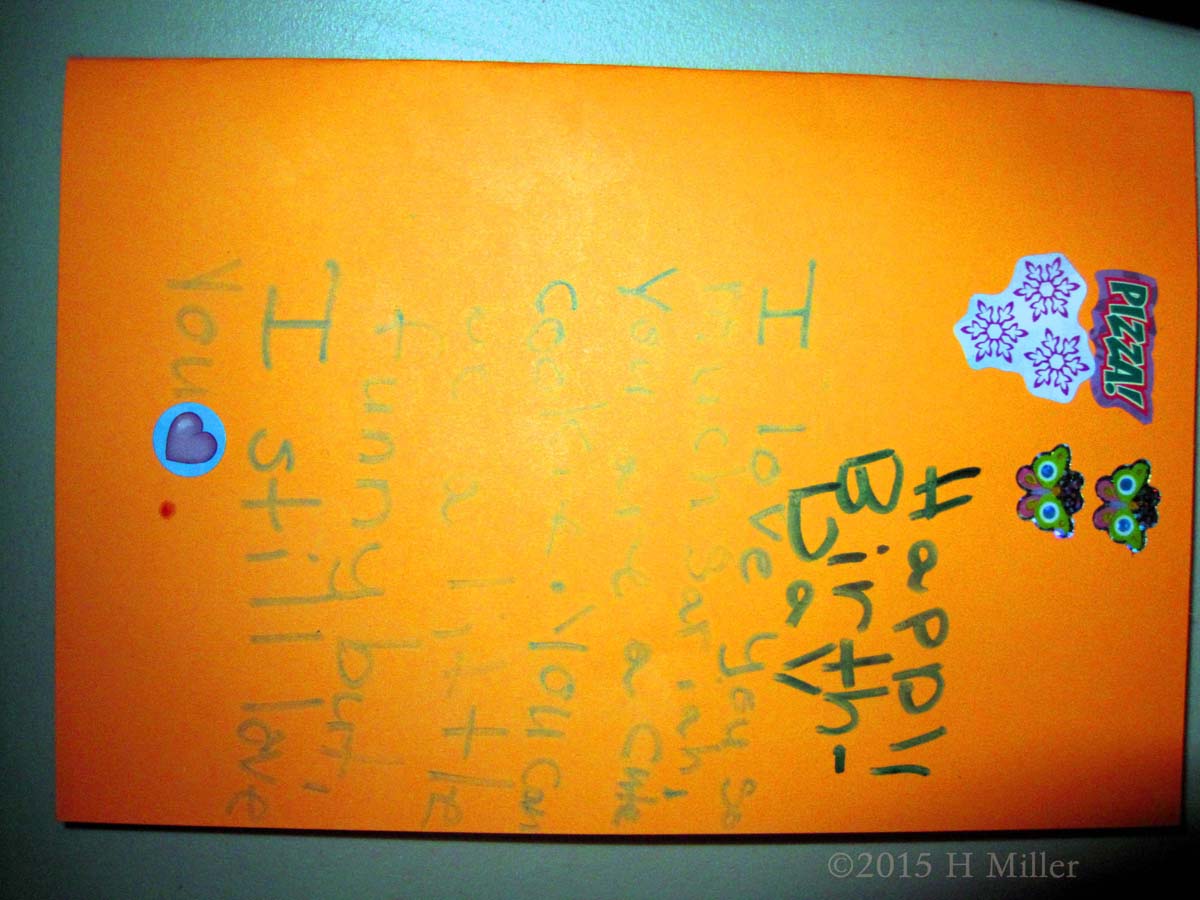 PIZZA!
Happy
Birth-
Day
I love you so
much
You are a Cute
You can
be a little
funny but,
I still love
You
©2015 H Miller